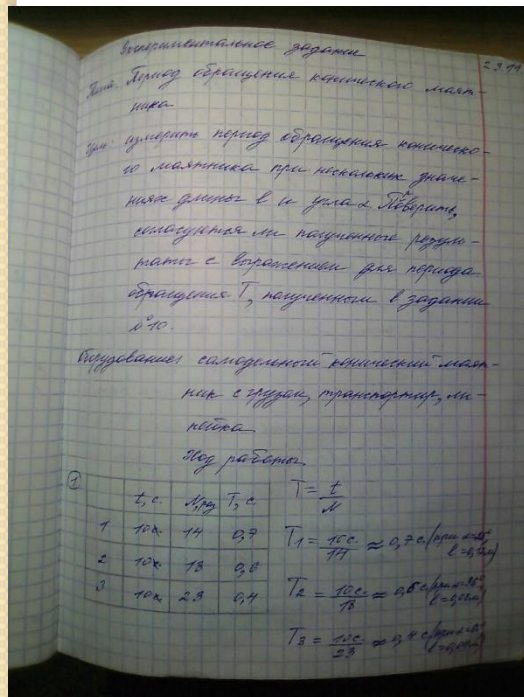 Экспериментальное задание
29.11
Тема: Период обращения конического маят-
ника.
Цель: измерить период обращения коническо-
го маятника при нескольких значе-
ниях длины l и угла α. Поверить,
согласуются ли полученные резуль-
таты с выражением для периода
обращения T, полученным в задании
№10.
борудование: самодельный конический маят-
ник с грузом, транспортир, ли-
нейка.
Ход работы.
①
t, с. N, раз T, с.
1 10с. 14 0,7
2 10с. 18 0,6
3 10с. 23 0,4
T = t/N
T₁ = 10с./14 ≈ 0,7 с. (при
T₂ = 10с./18 ≈ 0,6 с (при
T₃ = 10с./23 ≈ 0,4 с (при